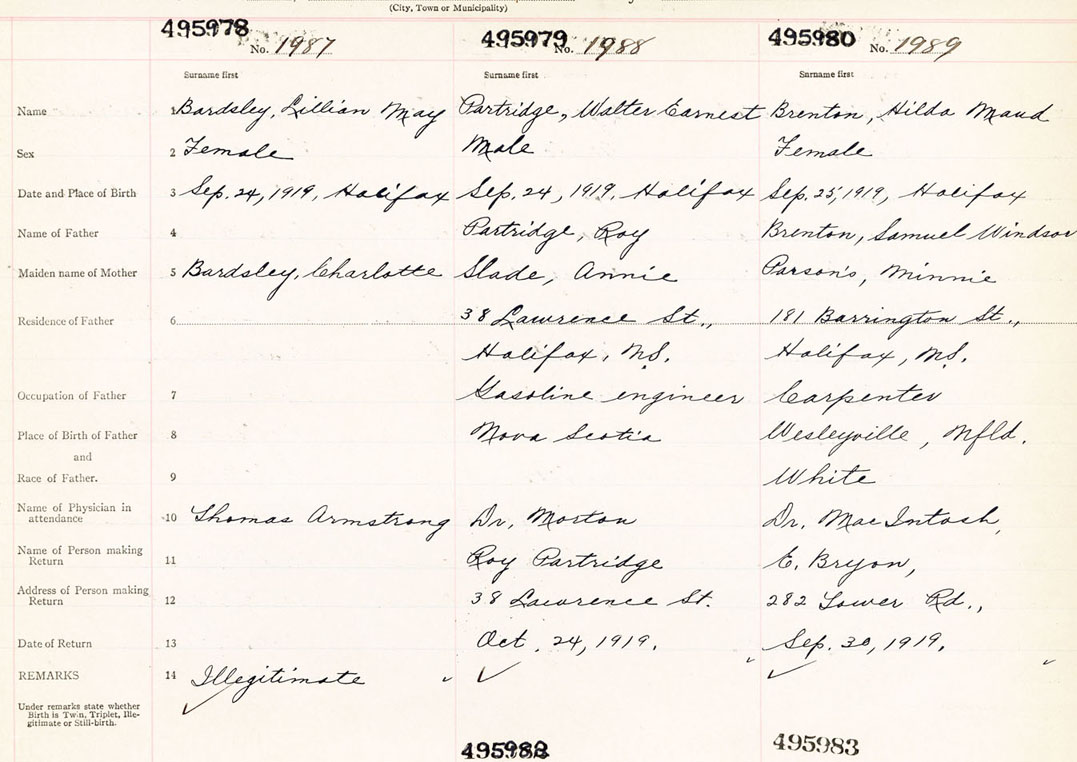 (City, Town or Municipality)
495978 No. 1987 495979 No. 1988 495980 No. 1989
Surname first Surname first Surname first
Name 1 Bardsley, Lillian May Partridge, Walter Earnest Brenton, Hilda Maud
Sex 2 Female Male Female
Date and Place of Birth 3 Sep. 24, 1919, Halifax Sep. 24, 1919, Halifax Sep. 25, 1919, Halifax
Name of Father 4 Partridge, Roy Brenton, Samuel Windsor
Maiden name of Mother 5 Bardsley, Charlotte Slade, Annie Parson's, Minnie
Residence of Father 6 38 Lawrence St., 181 Barrington St.,
Halifax, N.S. Halifax, N.S.
Occupation of Father 7 Gasoline engineer Carpenter
Place of Birth of Father 8 Nova Scotia Wesleyville, Nfld.
and
Race of Father. 9 White
Name of Physician in
attendance 10 Thomas Armstrong Dr. Morton Dr. MacIntosh,
Name of Person making
Return 11 Roy Partridge E. Bryon,
Address of Person making
Return 12 38 Lawrence St. 282 Tower Rd.,
Date of Return 13 Oct. 24, 1919. Sep. 30, 1919.
REMARKS 14 Illegitimate ✓ ✓
Under remarks state whether ✓
Birth is Twin, Triplet, Ille-
gitimate or Still-birth.
495983